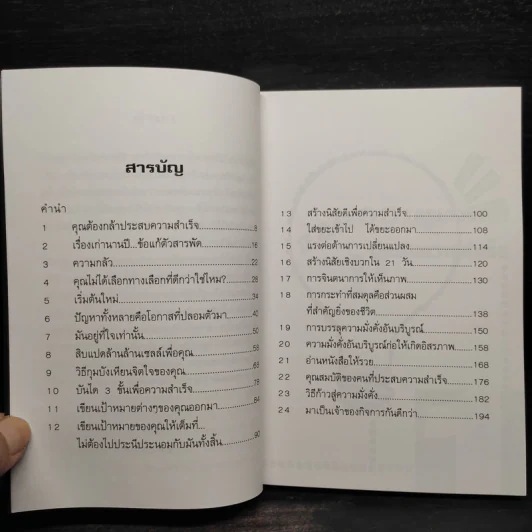 สารบัญ
คำนำ
1 คุณต้องกล้าประสบความสำเร็จ 8
2 เรื่องเก่านานปี...ข้อแก้ตัวสารพัด 16
3 ความกลัว 22
4 คุณไม่ได้เลือกทางเลือกที่ดีกว่าใช่ไหม? 28
5 เริ่มต้นใหม่ 34
6 ปัญหาทั้งหลายคือโอกาสที่ปลอมตัวมา 40
7 มันอยู่ที่ใจเท่านั้น 50
8 สิบแปดล้านล้านเซลล์เพื่อคุณ 58
9 วิธีกุมบังเหียนจิตใจของคุณ 68
10 บันได 3 ขั้นเพื่อความสำเร็จ 78
11 เขียนเป้าหมายต่างๆของคุณออกมา 84
12 เขียนเป้าหมายของคุณให้เต็มที่...
ไม่ต้องไปประนีประนอมกับมันทั้งสิ้น 90
13 สร้างนิสัยดีเพื่อความสำเร็จ 100
14 ใส่ขยะเข้าไป ได้ขยะออกมา 108
15 แรงต่อต้านการเปลี่ยนแปลง 114
16 สร้างนิสัยเชิงบวกใน 21 วัน 120
17 การจินตนาการให้เห็นภาพ 130
18 การกระทำที่สมดุลคือส่วนผสม
ที่สำคัญยิ่งของชีวิต 138
19 การบรรลุความมั่งคั่งอันบริบูรณ์ 150
20 ความมั่งคั่งอันบริบูรณ์ก่อให้เกิดอิสรภาพ 158
21 อ่านหนังสือให้รวย 168
22 คุณสมบัติของคนที่ประสบความสำเร็จ 176
23 วิธีก้าวสู่ความมั่งคั่ง 182
24 มาเป็นเจ้าของกิจการกันดีกว่า 194